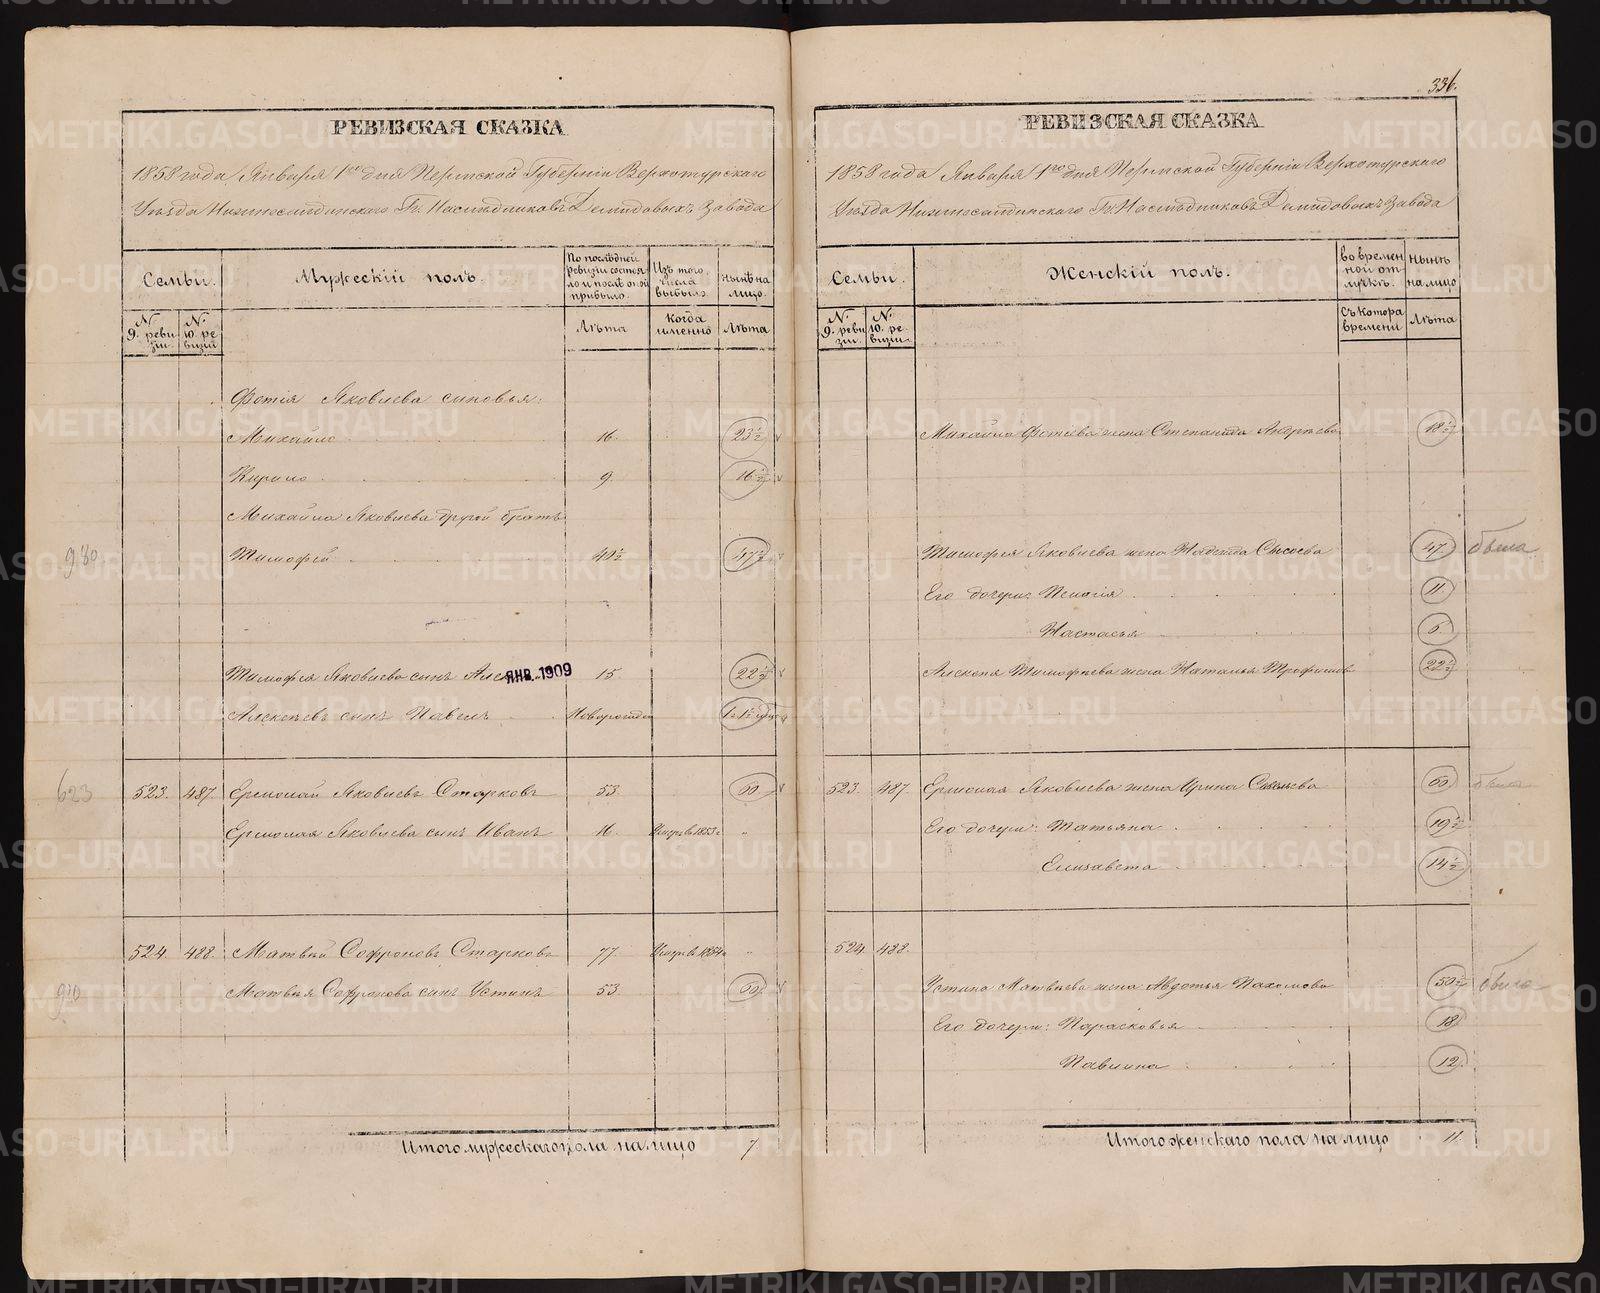 336.
РЕВИЗСКАЯ СКАЗКА
1858 года Января 1го дня Пермской Губерніи Верхотурскаго
Уѣзда Нижнесалдинскаго Гг. Наслѣдниковъ Демидовыхъ Завода
Семьи.
Мужескій полъ.
По послѣдней ревизіи состояло и послѣ оной прибыло.
Изъ того числа выбыло.
Нынѣ на лицо.
№ 9. ревизіи.
№ 10. ревизіи
Лѣта
Когда именно
Лѣта
Фотія Яковлева сыновья:
Михайло 16. 23½
Кирило 9. 16½
Михайла Яковлева другой братъ
980 Тимофей 40½ 47½
Тимофея Яковлева сынъ ЯНВ. 1909 15. 22½
Алексѣевъ сынъ Павелъ Новорожден
623 523. 487. Ермолай Яковлевъ Старковъ 53. 60
Ермолая Яковлева сынъ Иванъ 16. Умеръ въ 1853 г. "
524. 488. Матвѣй Софроновъ Старковъ 77. Умеръ въ 1854 г. "
910 Матвѣя Софронова сынъ Устинъ 53. 60
Итого мужескаго пола на лицо 7.
РЕВИЗСКАЯ СКАЗКА
1858 года Января 1го дня Пермской Губерніи Верхотурскаго
Уѣзда Нижнесалдинскаго Гг. Наслѣдниковъ Демидовыхъ Завода
Семьи.
Женскій полъ.
Во временной отлучкѣ.
Нынѣ на лицо
№ 9. ревизіи.
№ 10. ревизіи.
Съ котора времени
Лѣта
Михайла Фотіева жена Степанида Андреева 18½
Тимофея Яковлева жена Надежда Сысоева 47. была
Его дочери: Пелагія 11.
Настасья 6.
Алексея Тимофеева жена Наталья Трофимова 22½
523. 487. Ермолая Яковлева жена Ирина Савельева 60 была
Его дочери: Татьяна 19½
Елизавета 14½
524. 488.
Устина Матвѣева жена Авдотья Пахомова 50½ была
Его дочери: Парасковья 18
Павлина 12.
Итого женскаго пола на лицо 11.
METRIKI.GASO-URAL.RU